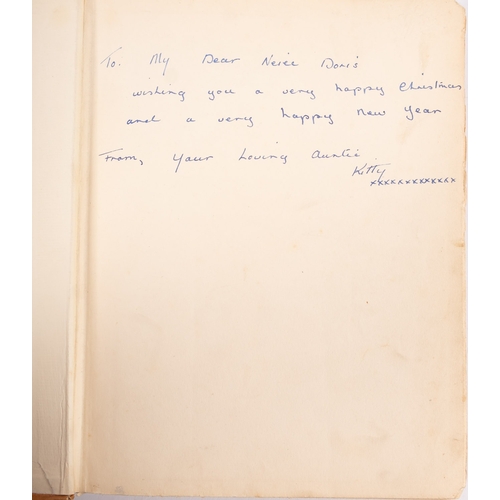 To. My Dear Neice Doris
wishing you a very happy Christmas
and a very happy New Year
From, Your Loving Auntie
Kitty
xxxxxxxxxxxxx